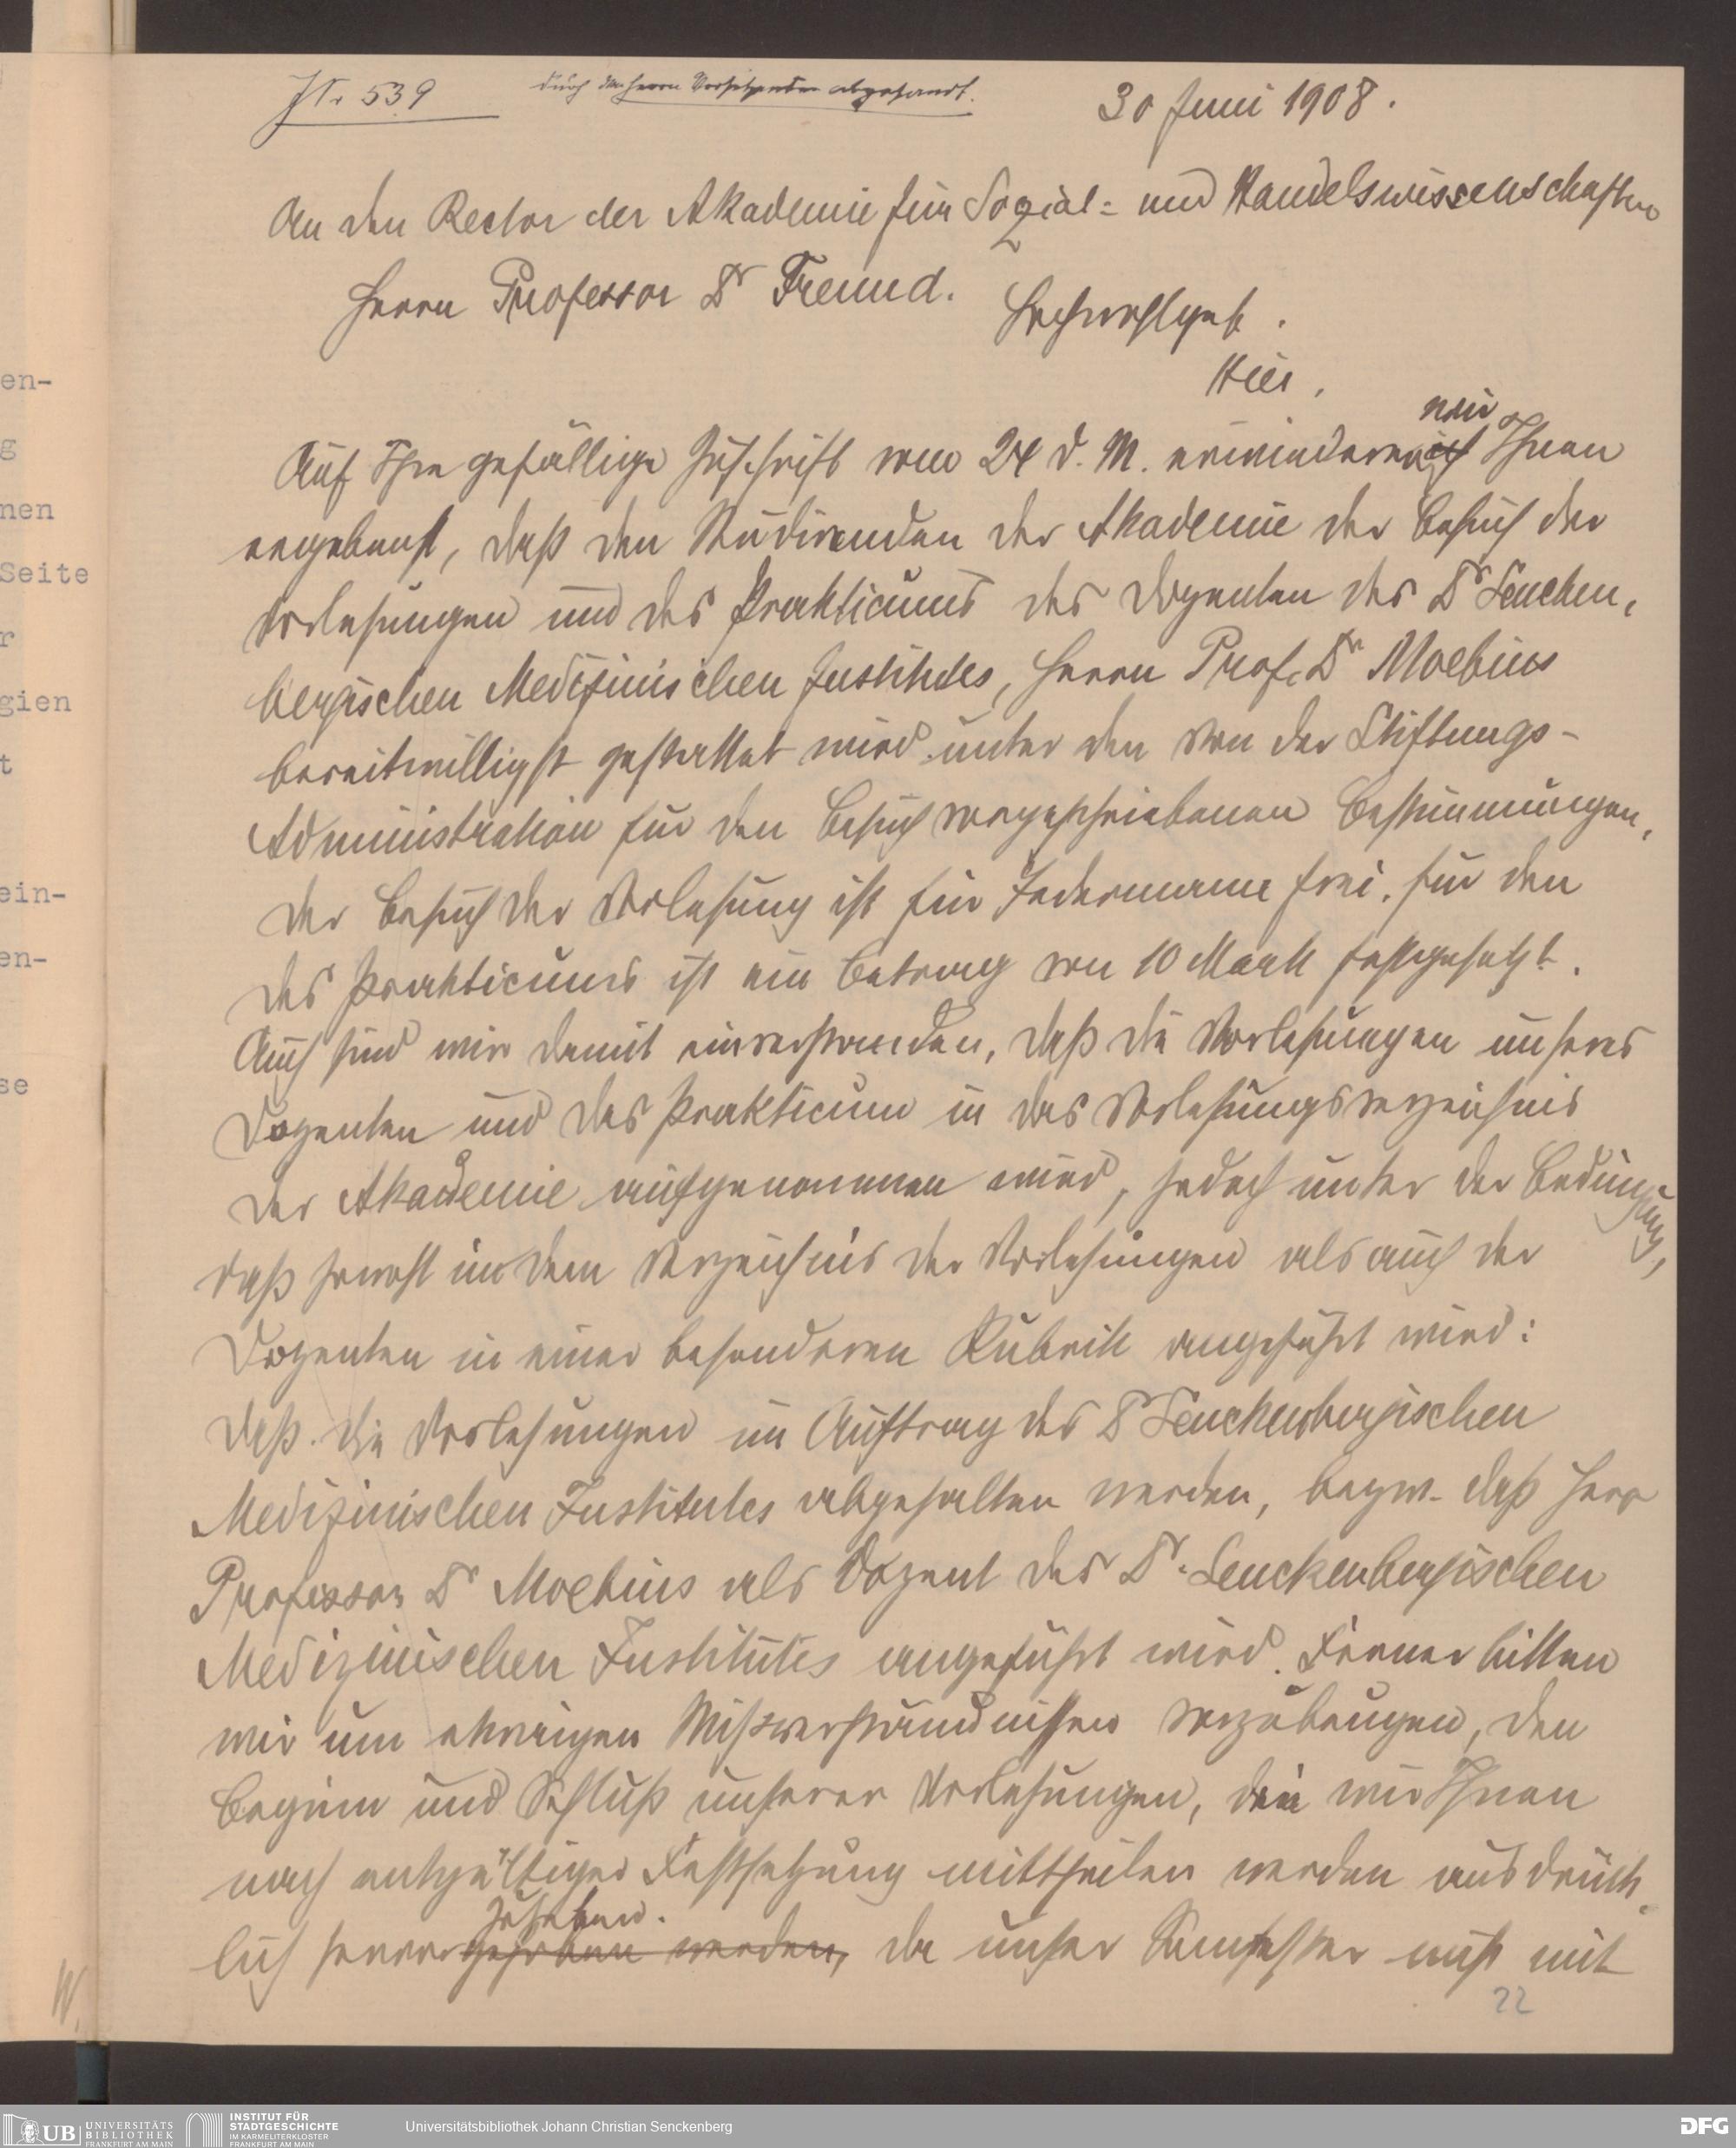 JNr 539
durch den Herrn Vorsitzenden abgesandt.
30 Juni 1908.
An den Rector der Akademie für Sozial- und Handelswissenschaften
Herrn Professor Dr Freund.
Hochwohlgeb.
Hier,
wir
Auf Ihre gefällige Zuschrift vom 24 d. M. erwidere ich Ihnen
ergebenst, daß den Studirenden der Akademie der Besuch der
Vorlesungen und des Prakticums des Dozenten des Dr Sencken-
bergischen Medizinischen Institutes, Herrn Prof. Dr Moebius
bereitwilligst gestattet wird unter den von der Stiftungs-
Administration für den Besuch vorgeschriebenen Bestimmungen,
Der Besuch der Vorlesung ist für Jedermann frei, für den
des Prakticums ist ein Betrag von 10 Mark festgesetzt.
Auch sind wir damit einverstanden, daß die Vorlesungen unseres
Dozenten und das Prakticum in das Vorlesungsverzeichnis
der Akademie aufgenommen wird, jedoch unter der Bedingung,
daß sowohl in dem Verzeichnis der Vorlesungen als auch der
Dozenten in einer besonderen Rubrik angeführt wird:
daß die Vorlesungen im Auftrag des Dr Senckenbergischen
Medizinischen Institutes abgehalten werden, bezw. daß Herr
Professor Dr Moebius als Dozent des Dr. Senckenbergischen
Medizinischen Institutes angeführt wird. Ferner bitten
wir um etwaigen Mißverständnissen vorzubeugen, den
Beginn und Schluß unserer Vorlesungen, die wir Ihnen
nach entgültiger Festsetzung mittheilen werden ausdrück-
lich
da unser Semester nicht mit
22
en-
g
nen
Seite
r
gien
t
ein-
en-
se
W.
UB UNIVERSITÄTS
BIBLIOTHEK
FRANKFURT AM MAIN
INSTITUT FÜR
STADTGESCHICHTE
IM KARMELITERKLOSTER
FRANKFURT AM MAIN
Universitätsbibliothek Johann Christian Senckenberg
DFG